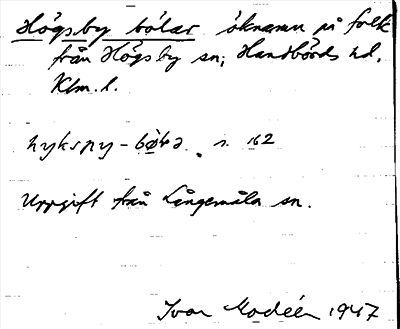 Högsby bölar öknamn på folk
från Högsby sn; Handbörds hd.
Klm. l.
s. 162
Uppgift från Långemåla sn.
Ivar Modéer 1947